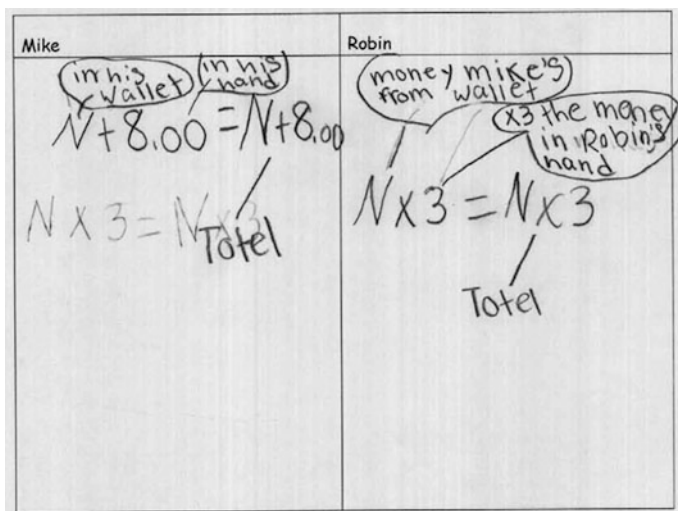 Mike
in his
wallet
in his
hand
N+8.00=N+8.00
N x 3 = N x 3
Totel
Robin
money mike's
from wallet
x3 the money
in Robin's
hand
Nx3=Nx3
Totel